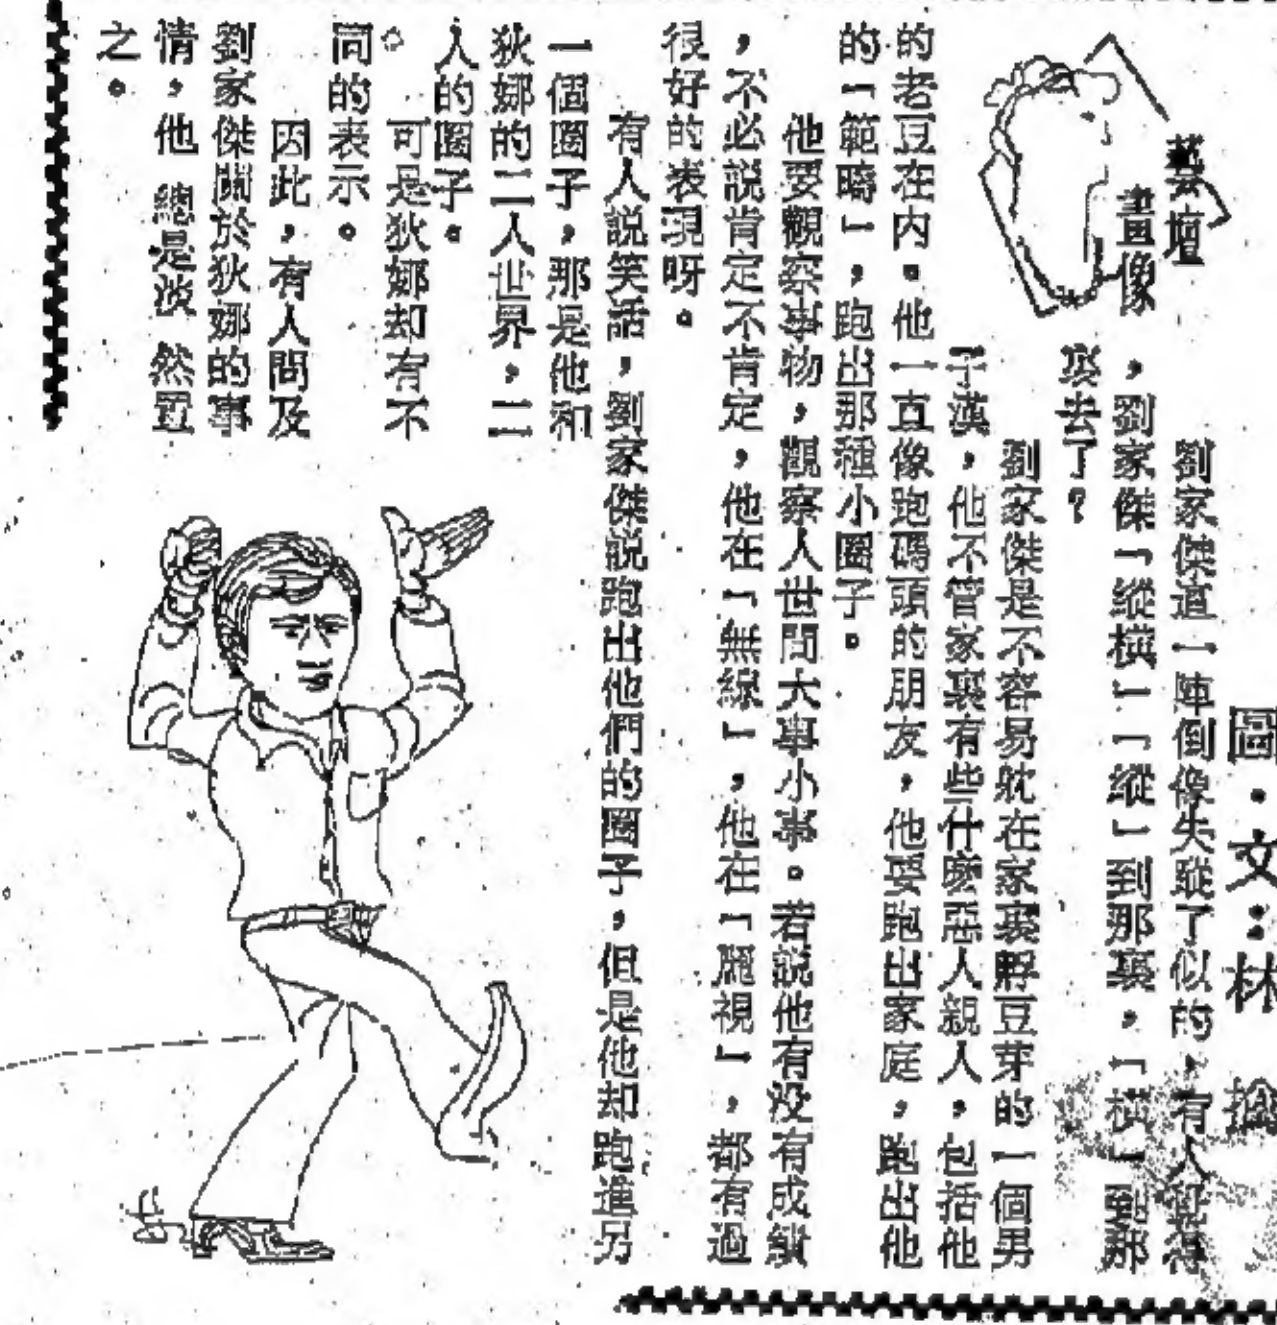 藝壇
畫像
圖・文：林
劉家傑這一陣倒像失蹤了似的，有人
，劉家傑「縱橫」「縱」到那裏，「橫」到那
裏去了？
劉家傑是不容易躭在家裏孵豆芽的一個男
子漢，他不管家裏有些什麽惡人親人，包括他
的老豆在內。他一直像跑碼頭的朋友，他要跑出家庭，跑出他
的「範疇」，跑出那種小圈子。
他要觀察事物，觀察人世間大事小事。若說他有沒有成績
，不必説肯定不肯定，他在「無線」，他在「麗視」，都有過
很好的表現呀。
有人説笑話，劉家傑説跑出他們的圈子，但是他却跑進另
一個圈子，那是他和
狄娜的二人世界，二
人的圈子。
可是狄娜却有不
同的表示。
因此，有人問及
劉家傑關於狄娜的事
情，他總是淡然置
之。